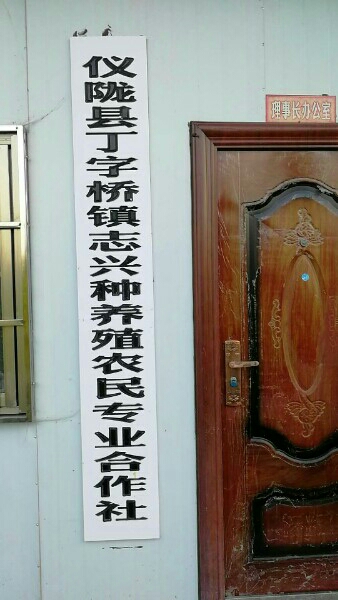 仪陇县丁字桥镇志兴种养殖农民专业合作社
理事长办公室